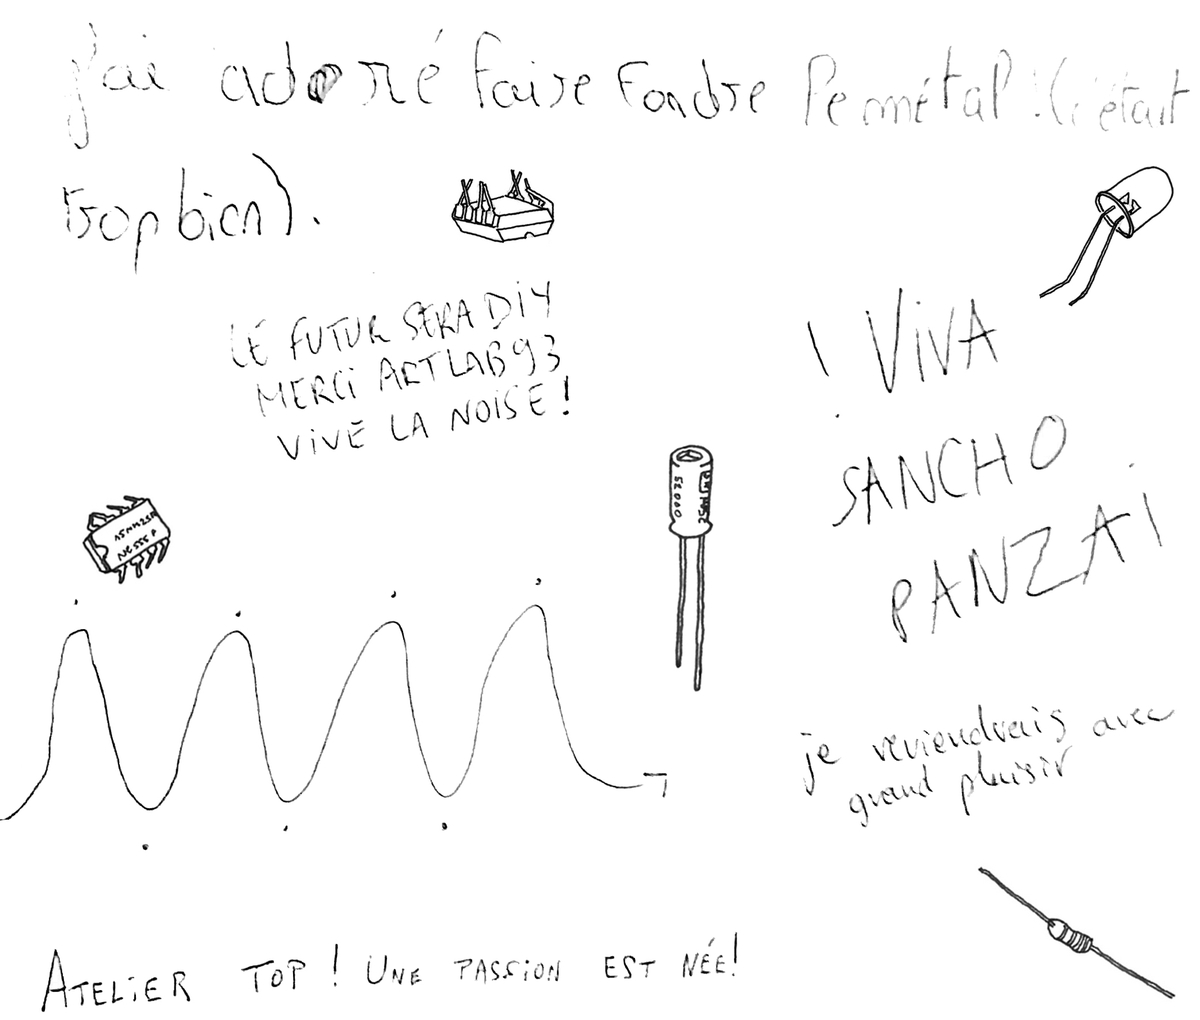 j'ai adoré faire fondre le métal ! (c'était
trop bien).
LE FUTUR SERA DiY
MERCi ARTLAB93
ViVE LA NOiSE !
! ViVA
SANCHO
PANZAi
NE555P
je reviendrais avec
grand plaisir
ATELiER TOP ! UNE PASSiON EST NÉE!